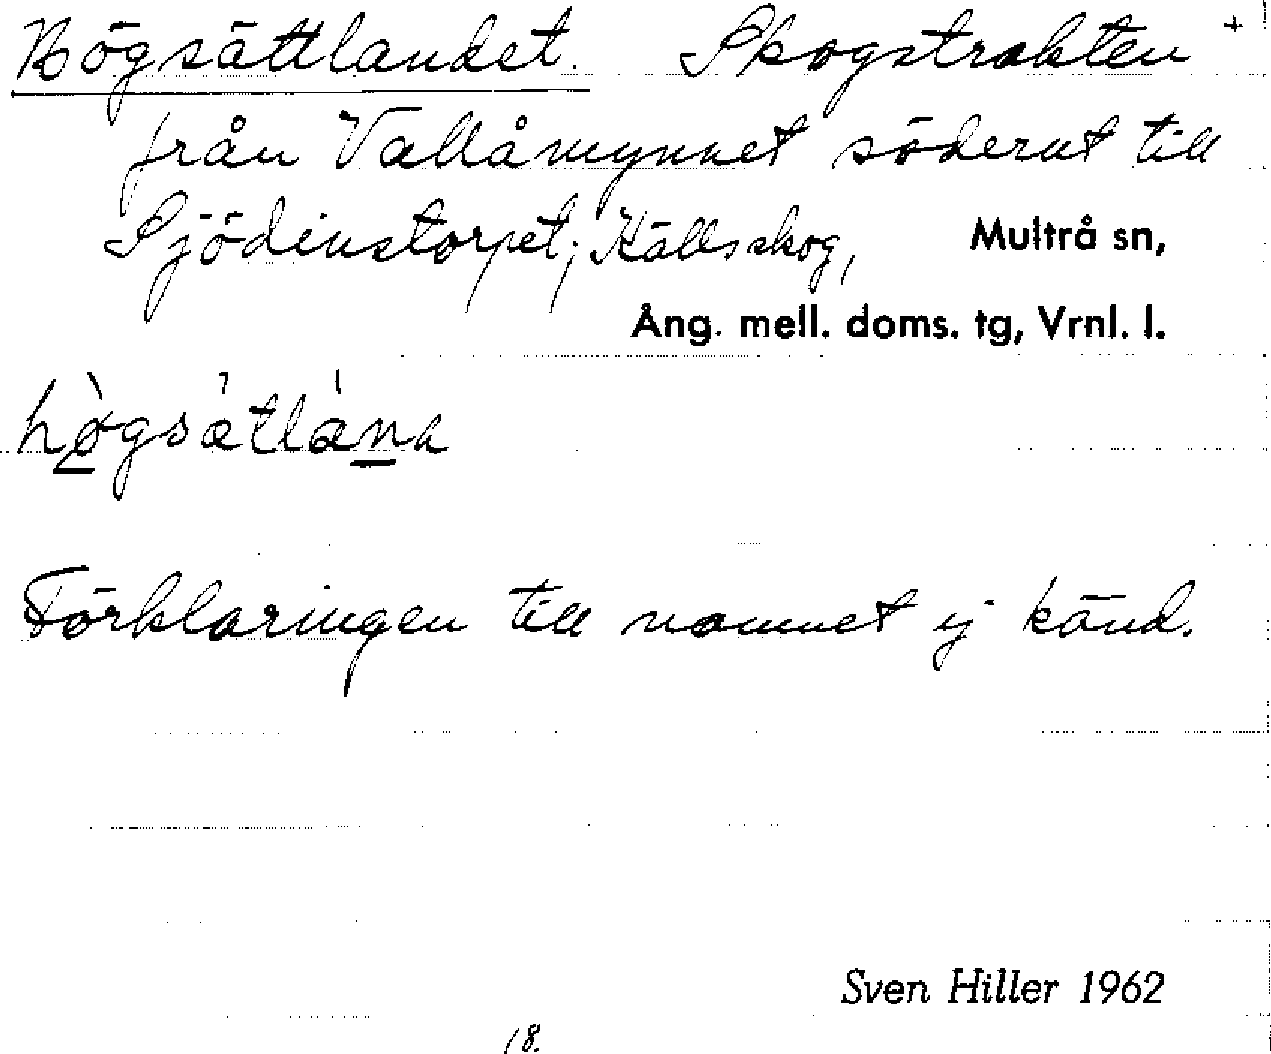 Högsättlandet. Skogstrakten +
från Vallåmynnet söderut till
Sjödinstorpet; Källsskog, Multrå sn,
Ång. mell. doms. tg, Vrnl. l.
hø̀gsátlána
Förklaringen till namnet ej känd.
Sven Hiller 1962
18.